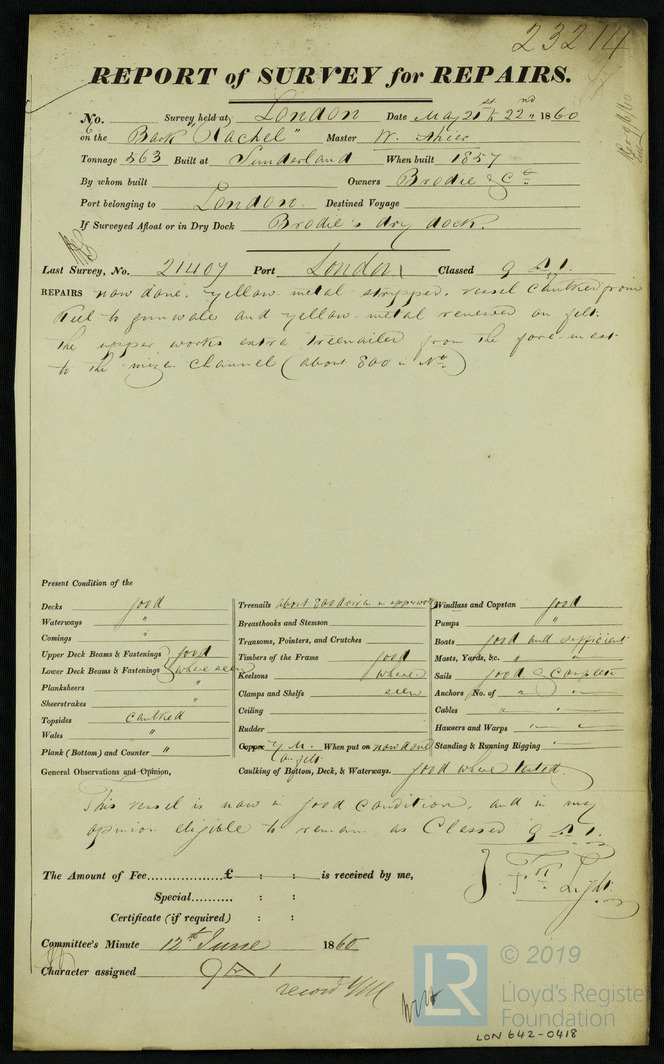 23214
REPORT of SURVEY for REPAIRS.
No. Survey held at London Date May 21st & 22nd 1860
on the Bark "Rachel" Master W. Shier
Tonnage 563 Built at Sunderland When built 1857
By whom built Owners Brodie & Co
Port belonging to London. Destined Voyage
If Surveyed Afloat or in Dry Dock Brodie's dry dock.
Last Survey, No. 21407 Port London Classed 9 A 1.
REPAIRS now done. Yellow metal stripped. vessel caulked from
keel to gunwale and yellow metal renewed on felt.
The upper works extra treenailed from the fore-mast
to the mizen channel (about 800 in No)
Present Condition of the
Decks good
Waterways "
Comings "
Upper Deck Beams & Fastenings good
Lower Deck Beams & Fastenings where seen
Planksheers "
Sheerstrakes "
Topsides caulked
Wales "
Plank (Bottom) and Counter "
Treenails about 800 driven in upper works
Breasthooks and Stemson
Transoms, Pointers, and Crutches
Timbers of the Frame good
Keelsons where
Clamps and Shelfs seen
Ceiling
Rudder
Copper Y. M. on felt When put on now done
Windlass and Capstan good
Pumps "
Boats good and sufficient
Masts, Yards, &c. " "
Sails good & complete
Anchors No. of " "
Cables " "
Hawsers and Warps " "
Standing & Running Rigging "
General Observations and Opinion, Caulking of Bottom, Deck, & Waterways. good where tested.
This vessel is now in good condition, and in my
opinion eligible to remain as Classed 9 A 1.
The Amount of Fee..................£ : : is received by me,
Special.......... : :
Certificate (if required) : :
Light
Committee's Minute 12th June 1860
Character assigned 9 A 1
record YM
LR © 2019
Lloyd's Register
Foundation
LON 642-0418